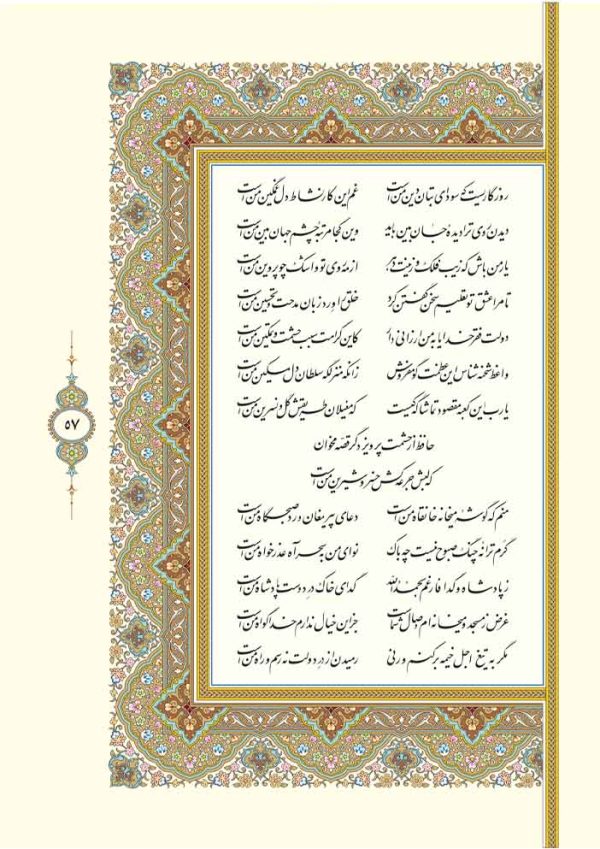 روزگاریست که سودای بتان دین من است غم این کار نشاط دل غمگین من است
دیدن روی ترا دیدهٔ جان بین باید وین کجا مرتبهٔ چشم جهان بین من است
یار من باش که زیب فلک و زینت دهر از مه روی تو و اشک چو پروین من است
تا مرا عشق تو تعلیم سخن گفتن کرد خلق را ورد زبان مدحت و تحسین من است
دولت فقر خدایا به من ارزانی دار کاین کرامت سبب حشمت و تمکین من است
واعظ شحنه شناس این عظمت گو مفروش زانکه منزلگه سلطان دل مسکین من است
یارب این کعبه مقصود تماشاگه کیست که مغیلان طریقش گل و نسرین من است
حافظ از حشمت پرویز دگر قصه مخوان
که لبش جرعه کش خسرو شیرین من است
منم که گوشهٔ میخانه خانقاه من است دعای پیر مغان ورد صبحگاه من است
گرم ترانهٔ چنگ صبوح نیست چه باک نوای من به سحر آه عذرخواه من است
ز پادشاه و گدا فارغم بحمدالله گدای خاک در دوست پادشاه من است
غرض ز مسجد و میخانه ام وصال شماست جز این خیال ندارم خدا گواه من است
مگر به تیغ اجل خیمه برکنم ورنی رمیدن از در دولت نه رسم و راه من است
۵۷